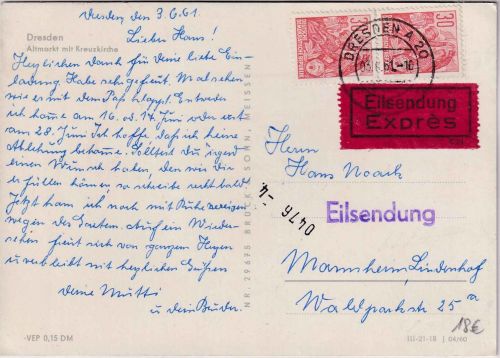 Dresden, den 3.6.61.
Lieber Hans!
Dresden
Altmarkt mit Kreuzkirche
Herzlichen Dank für deine liebe Ein-
ladung. Habe sehr gefreut. Mal sehen
wie es mit dem Paß klappt. Entweder
ich komme am 16. od. 17. Juni oder erst
am 28. Juni. Ich hoffe daß ich keine
Ablehnung bekomme. Solltest du irgend
einen Wunsch haben, den wir dir
erfüllen können, so schreibe recht bald.
Jetzt kam ich noch mit
wegen des Gartens. Auf ein Wieder-
sehen freut sich von ganzem Herzen
u. verbleibt mit herzlichen Grüßen
deine Mutti
u. dein Bruder.
VEP 0,15 DM
NR. 29675 BRÜCK & SOHN, MEISSEN
30
30
DRESDEN A 20
Eilsendung
Exprès
0476
Eilsendung
Herrn
Hans Noack
Mannheim, Lindenhof
Waldparkstr. 25 a
18€
III-21-18 | 04/60